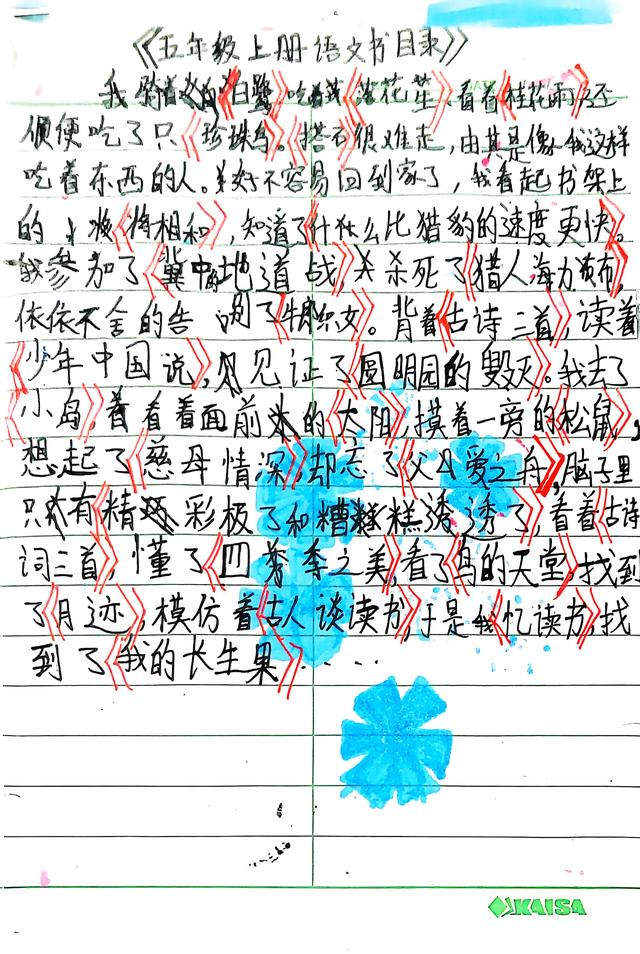 《五年级上册语文书目录》
我《白鹭》吃着《落花生》看着《桂花雨》还
便便吃了只《珍珠鸟》。《搭石》很难走，由其是像我这样
吃着东西的人。好不容易回到家了，我看起书架上
的《将相和》，知道了《什么比猎豹的速度更快》。
我参加了《冀中的地道战》，杀死了《猎人海力布》，
依依不舍的告别了《牛郎织女》。背着《古诗三首》，读着
《少年中国说》，见证了《圆明园的毁灭》。我去了
《小岛》，看着面前的《太阳》，摸着一旁的《松鼠》，
想起了《慈母情深》，却忘了《父母爱之舟》，脑子里
只有《精彩极了和糟糕透了》，看着《古诗
词三首》，懂了《四季之美》，看了《鸟的天堂》，找到
了《月迹》，模仿着《古人谈读书》，于是我《忆读书》，找
到了《我的长生果》......
KAISA